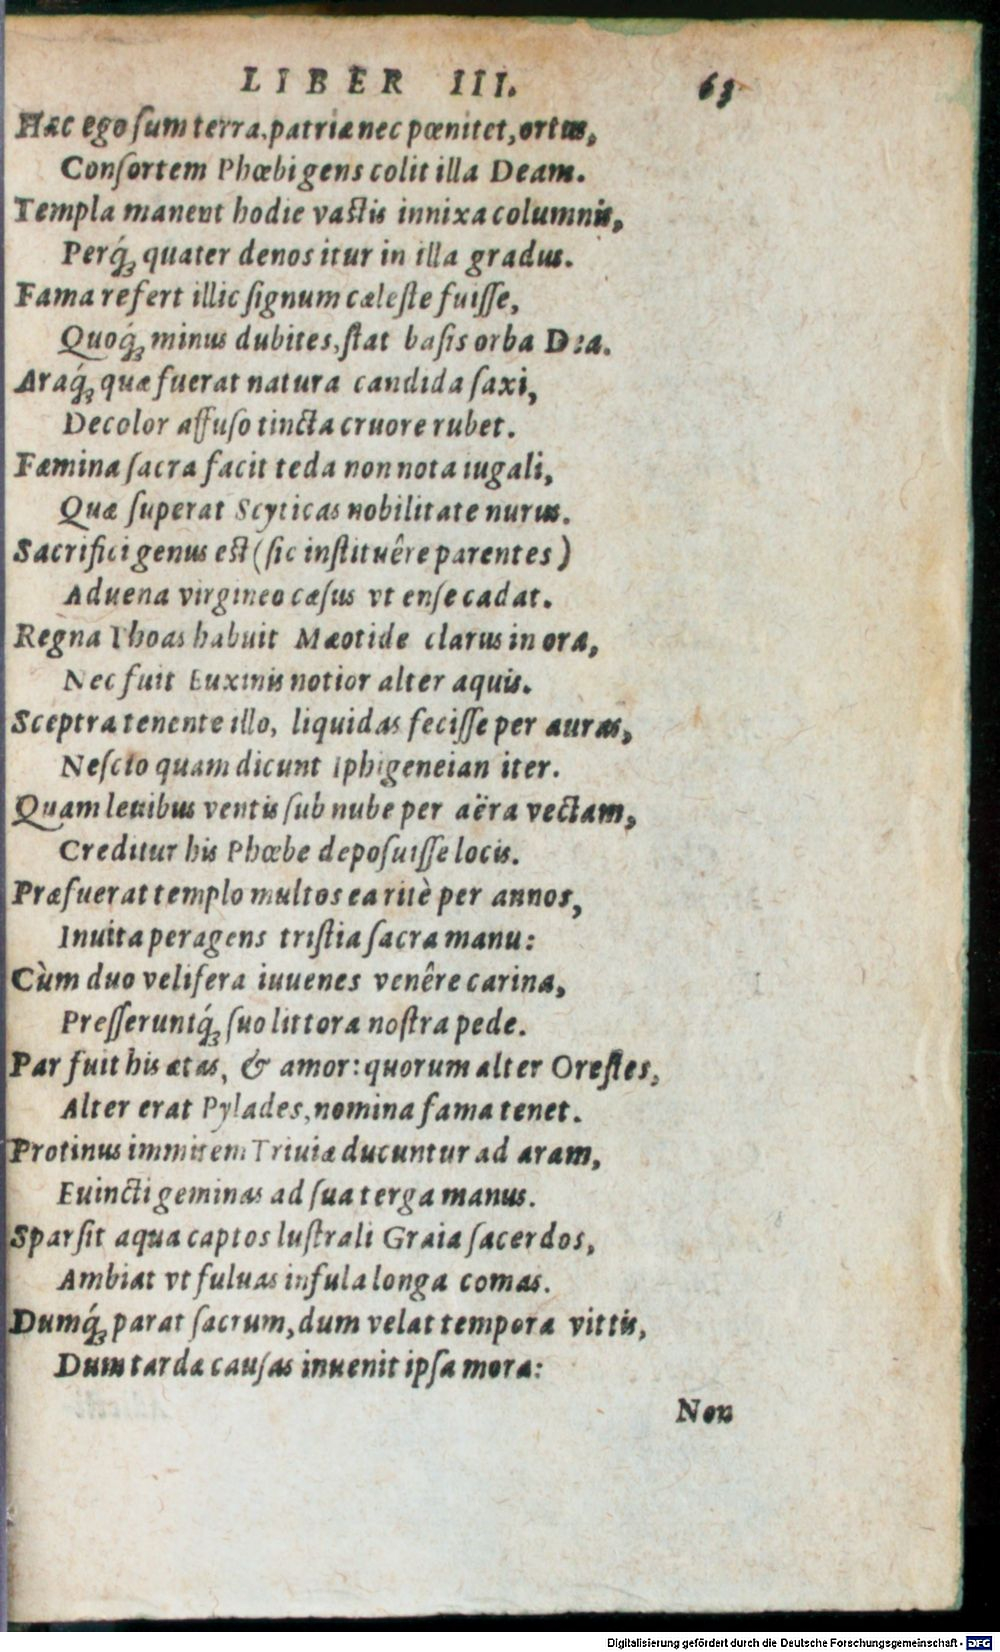 LIBER III. 63
Hæc ego ſum terra, patriæ nec pœnitet, ortus,
Conſortem Phœbi gens colit illa Deam.
Templa manent hodie vaſtis innixa columnis,
Perq́ꝫ quater denos itur in illa gradus.
Fama refert illic ſignum cæleſte fuiſſe,
Quoq́ꝫ minus dubites, ſtat baſis orba Dea.
Araq́ꝫ quæ fuerat natura candida ſaxi,
Decolor affuſo tincta cruore rubet.
Fæmina ſacra facit teda non nota iugali,
Quæ ſuperat Scyticas nobilitate nurus.
Sacrifici genus eſt (ſic inſtituêre parentes)
Aduena virgineo cæſus vt enſe cadat.
Regna Thoas habuit Mæotide clarus in ora,
Nec fuit Euxinis notior alter aquis.
Sceptra tenente illo, liquidas feciſſe per auras,
Neſcio quam dicunt Iphigeneian iter.
Quam leuibus ventis ſub nube per aëra vectam,
Creditur his Phœbe depoſuiſſe locis.
Præfuerat templo multos ea ritè per annos,
Inuita peragens triſtia ſacra manu:
Cùm duo velifera iuuenes venêre carina,
Preſſeruntq́ꝫ ſuo littora noſtra pede.
Par fuit his ætas, & amor: quorum alter Oreſtes,
Alter erat Pylades, nomina fama tenet.
Protinus immitem Triuiæ ducuntur ad aram,
Euincti geminas ad ſua terga manus.
Sparſit aqua captos luſtrali Graia ſacerdos,
Ambiat vt fuluas infula longa comas.
Dumq́ꝫ parat ſacrum, dum velat tempora vittis,
Dum tarda cauſas inuenit ipſa mora:
Non
Digitalisierung gefördert durch die Deutsche Forschungsgemeinschaft - DFG